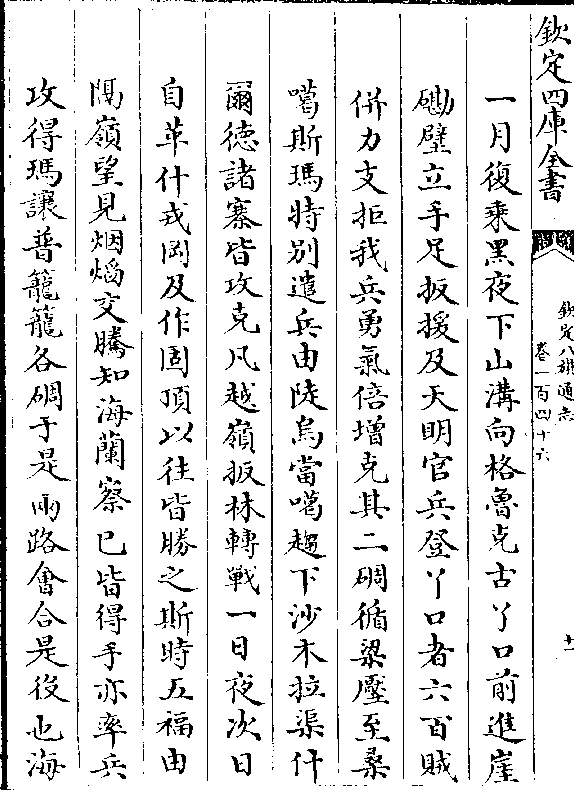 欽定四庫全書
欽定八旗通志
卷一百四十六
十一
一月復乘黑夜下山溝向格魯克古丫口前進崖
磡壁立手足扳援及天明官兵登丫口者六百賊
併力支拒我兵勇氣倍增克其二碉循梁壓至桑
噶斯瑪特別遣兵由陡烏當噶趨下沙木拉渠什
爾德諸寨皆攻克凡越嶺扳林轉戰一日夜次日
自革什戎岡及作固頂以往皆勝之斯時五福由
隔嶺望見烟熖交騰知海蘭察已皆得手亦率兵
攻得瑪讓普籠籠各碉于是兩路會合是役也海